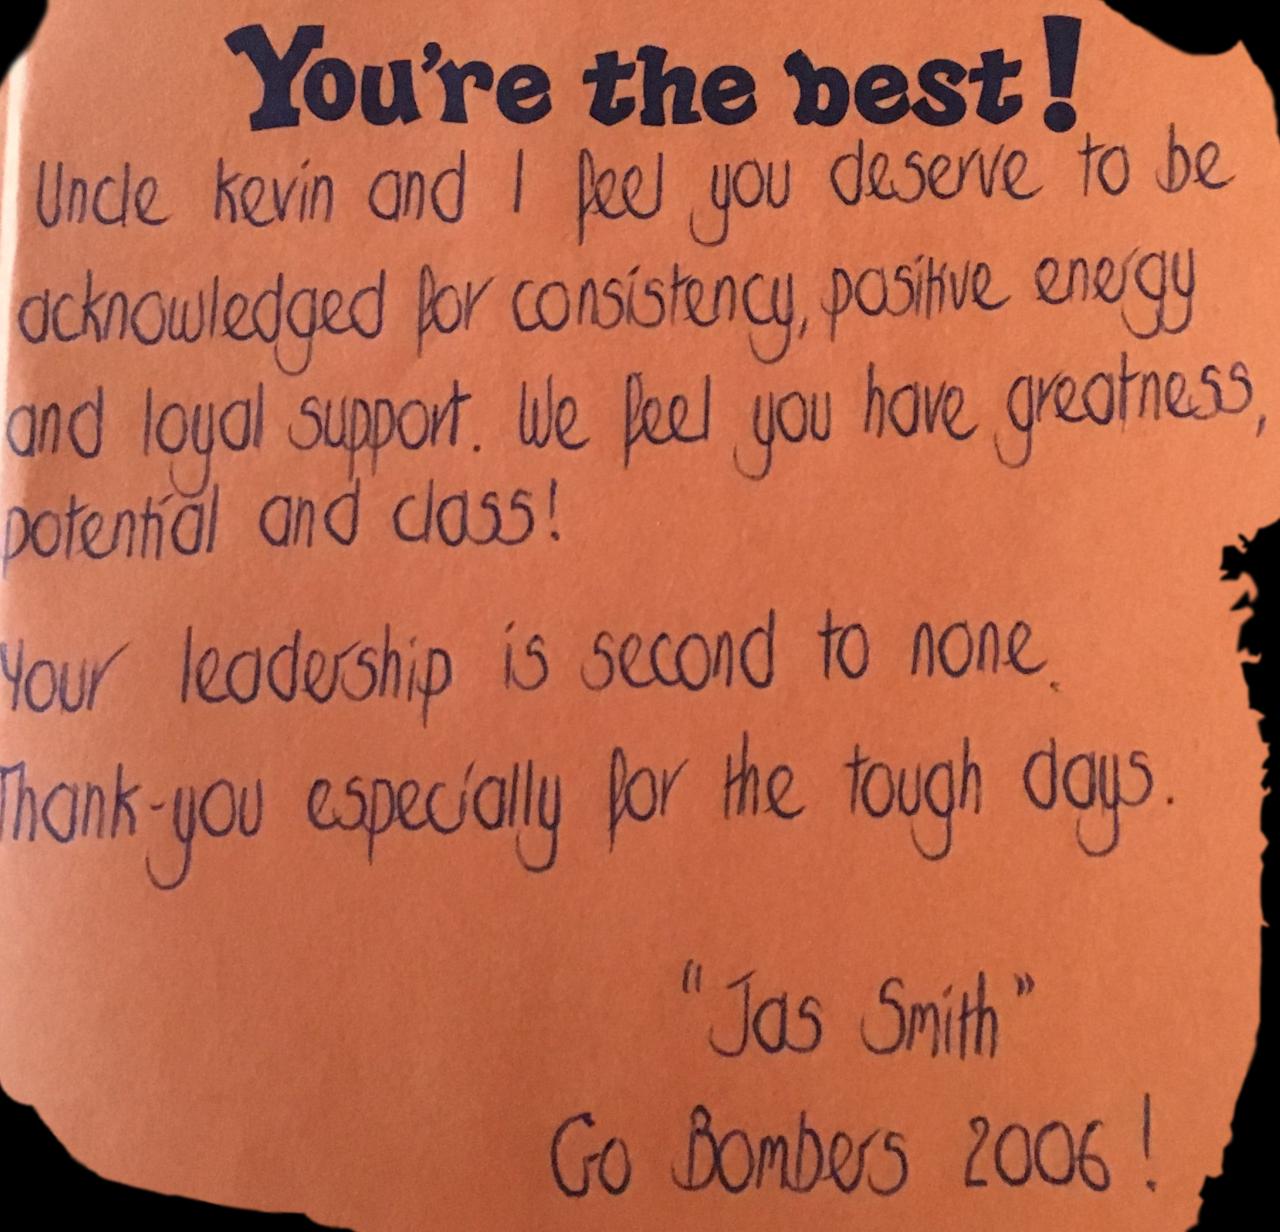 You're the best!
Uncle Kevin and I feel you deserve to be
acknowledged for consistency, positive energy
and loyal support. We feel you have greatness,
potential and class!
Your leadership is second to none.
Thank-you especially for the tough days.
"Jas Smith"
Go Bombers 2006!